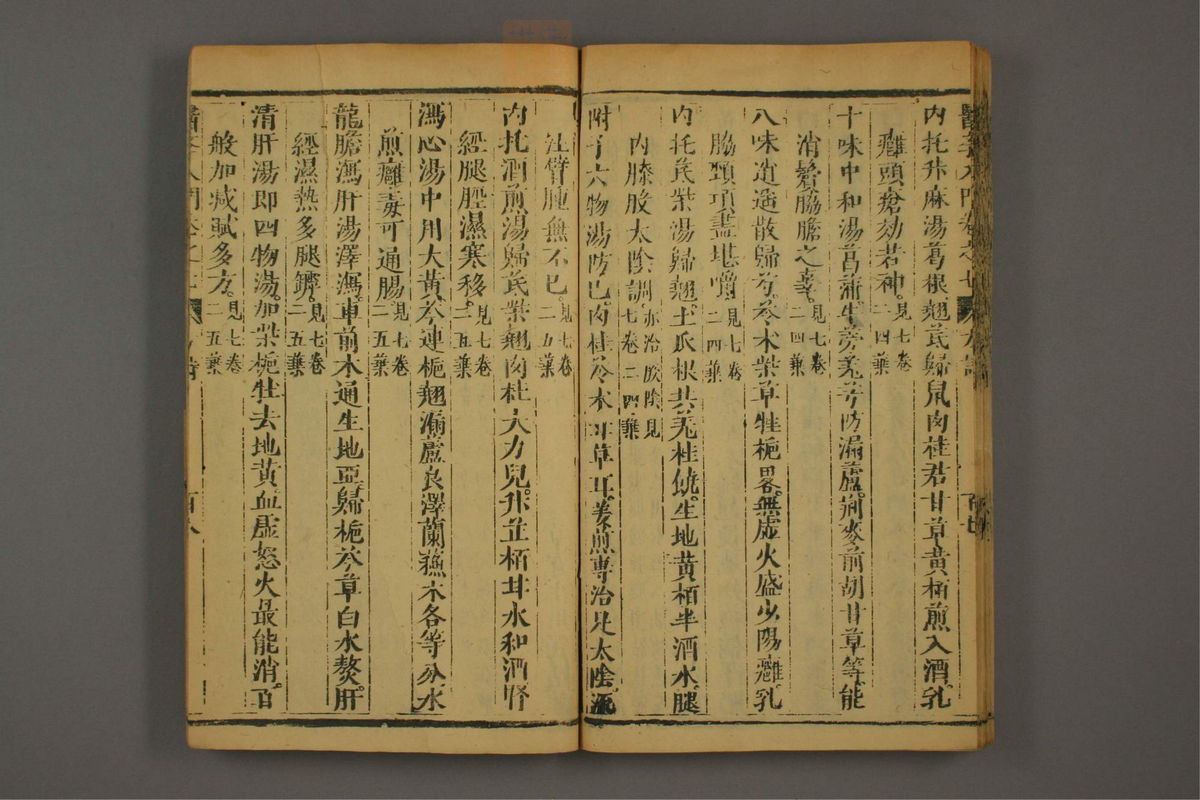 內托升麻湯葛根翹芪歸鼠肉桂君甘草黃栢煎入酒乳
癰頭瘡効若神見七卷二四葉
十味中和湯菖蒲牛蒡羌芎防漏蘆荊麥前胡甘草等能
消鬢脇膽之毒見七卷二四葉
八味逍遙散歸芍苓木柴草牡梔畧無虛火盛少陽癰乳
脇頸項盡堪嚼見七卷二四葉
內托芪柴湯歸翹土瓜根共羌桂饒生地黃栢半酒水腿
內膝股太陰調亦治厥陰見七卷二四葉
附子六物湯防已肉桂苓木耳草耳姜煎專治足太陰流
注臂腫無不已見七卷二五葉
內托酒煎湯歸芪柴翹肉桂大力兒升芷栢甘水和酒腎
經腿脛濕寒移見七卷二五葉
瀉心湯中用大黃芩連梔翹漏蘆良澤蘭蘓木各等分水
煎癰毒可通腸見七卷二五葉
龍膽瀉肝湯澤瀉車前木通生地亞歸梔芩草白水熬肝
經濕熱多腿臍見七卷二五葉
清肝湯即四物湯加柴梔牡去地黃血虛怒火最能消百
般加减賦多方見七卷二五葉
百八